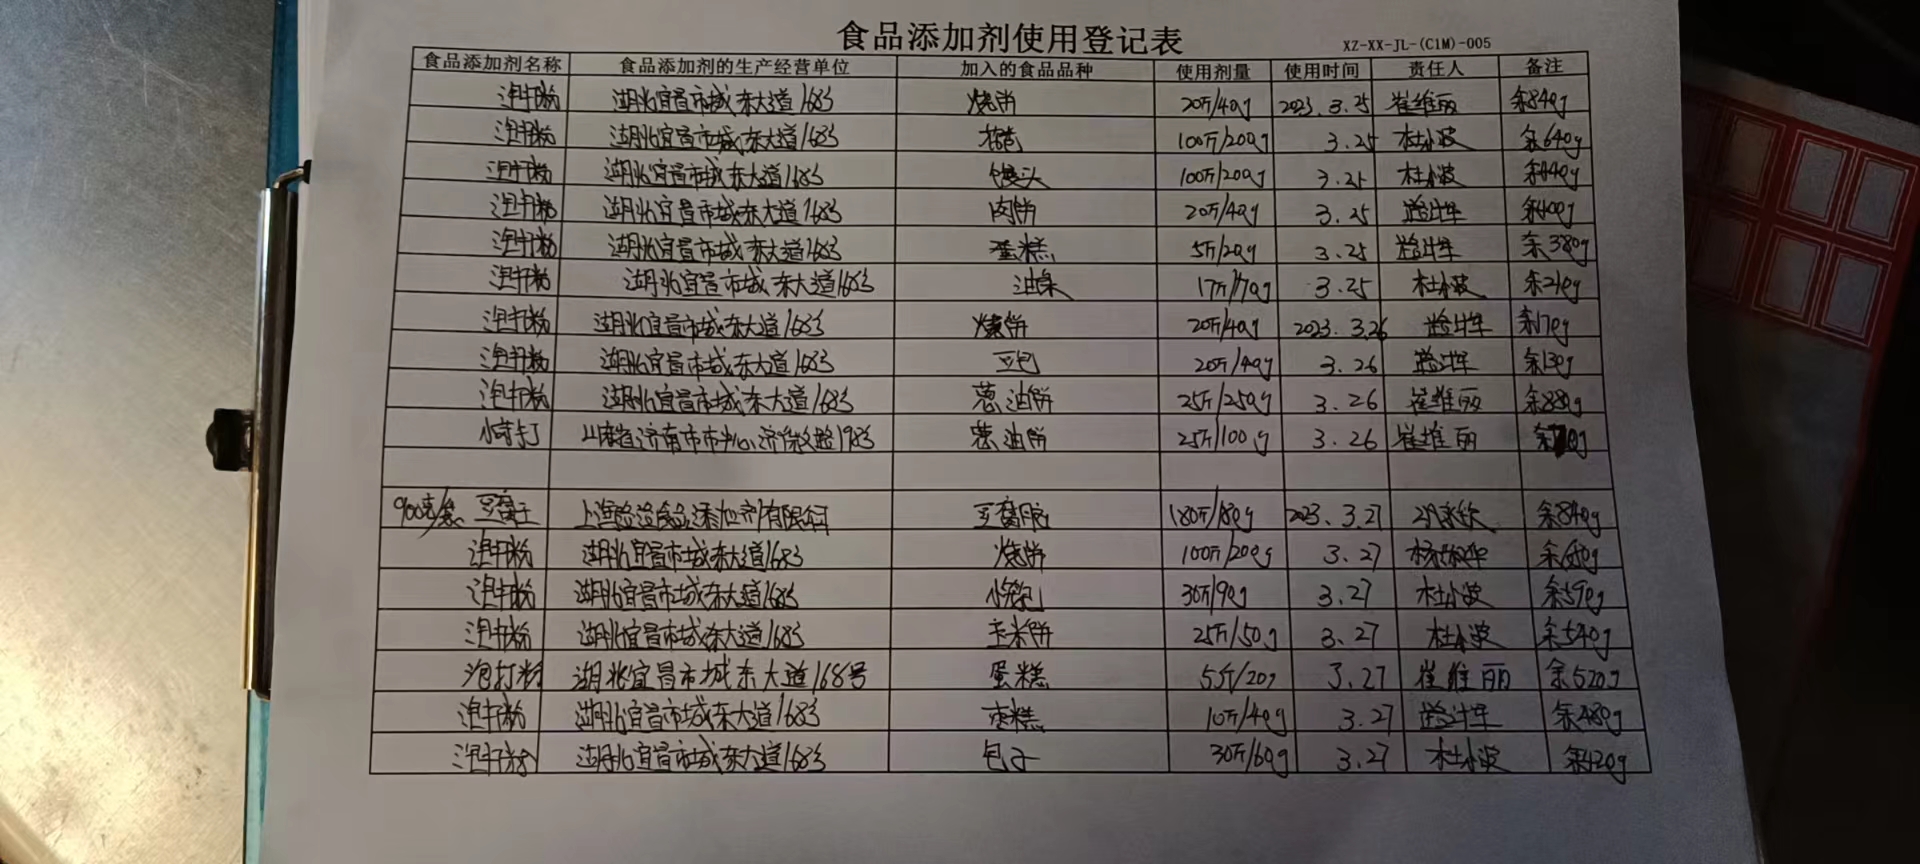 食品添加剂使用登记表
XZ-XX-JL-(C1M)-005
食品添加剂名称 食品添加剂的生产经营单位 加入的食品品种 使用剂量 使用时间 责任人 备注
泡打粉 湖北宜昌市城东大道168号 烧饼 20斤/40g 2023.3.25 崔维丽 余840g
泡打粉 湖北宜昌市城东大道168号 100斤/200g 3.25 杜小波 余640g
泡打粉 湖北宜昌市城东大道168号 馒头 100斤/200g 3.25 杜小波 余440g
泡打粉 湖北宜昌市城东大道168号 肉饼 20斤/40g 3.25 余400g
泡打粉 湖北宜昌市城东大道168号 蛋糕 5斤/20g 3.25 余380g
泡打粉 湖北宜昌市城东大道168号 油条 17斤/170g 3.25 杜小波 余210g
泡打粉 湖北宜昌市城东大道168号 烧饼 20斤/40g 2023.3.26 余170g
泡打粉 湖北宜昌市城东大道168号 豆包 20斤/40g 3.26 余130g
泡打粉 湖北宜昌市城东大道168号 葱油饼 25斤/250g 3.26 崔维丽 余880g
小苏打 山东省济南市市中区 198号 葱油饼 25斤/100g 3.26 崔维丽
900克/袋 豆腐王 上海 食品添加剂有限公司 豆腐脑 180斤/180g 2023.3.27 余840g
泡打粉 湖北宜昌市城东大道168号 烧饼 100斤/200g 3.27 余680g
泡打粉 湖北宜昌市城东大道168号 小笼包 30斤/90g 3.27 杜小波 余590g
泡打粉 湖北宜昌市城东大道168号 玉米饼 25斤/50g 3.27 杜小波 余540g
泡打粉 湖北宜昌市城东大道168号 蛋糕 5斤/20g 3.27 崔维丽 余520g
泡打粉 湖北宜昌市城东大道168号 枣糕 10斤/40g 3.27 余480g
泡打粉 湖北宜昌市城东大道168号 包子 30斤/60g 3.27 杜小波 余420g